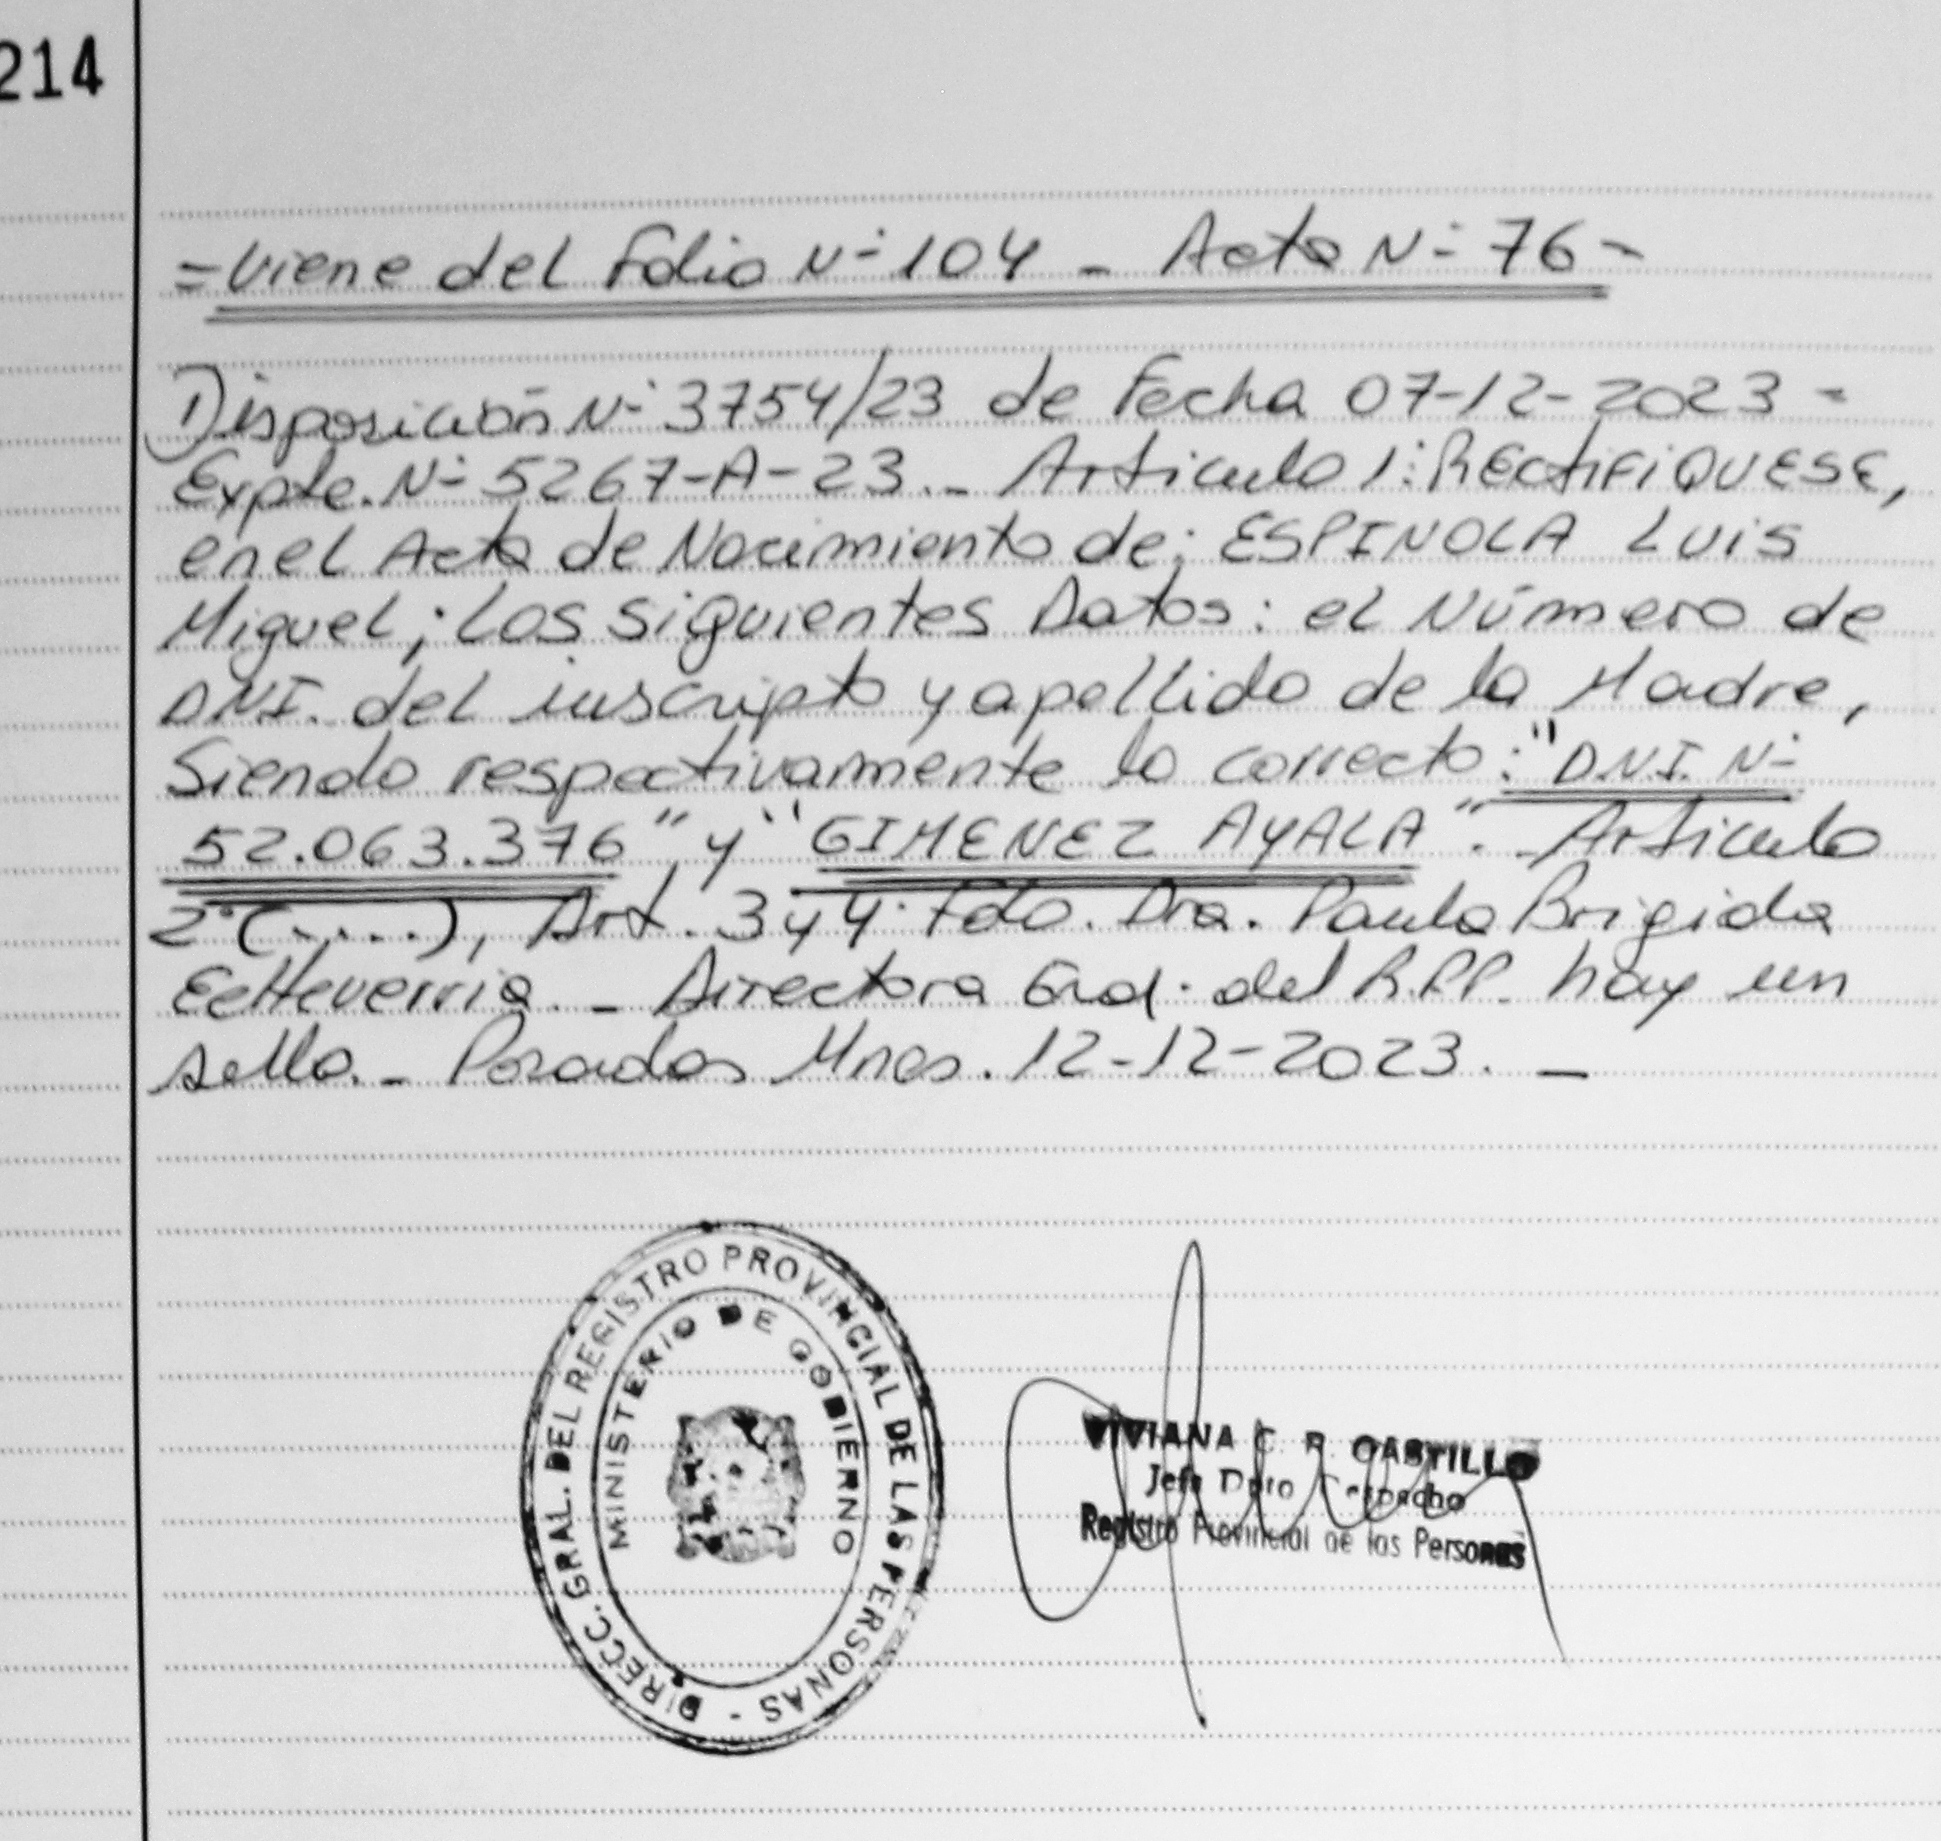 214
=Viene del Folio N° 104 - Acta N° 76-
Disposición N° 3754/23 de Fecha 07-12-2023 -
Expte. N° 5267-A-23._ Articulo 1: RECtiFiQUESE,
en el Acta de Nacimiento de: ESPINOLA LUis
Miguel; Los Siguientes Datos: el Número de
DNI. del inscripto y apellido de la Madre,
Siendo respectivamente lo correcto: "D.N.I. N°
52.063.376", y "GIMENEZ AYALA". _ Articulo
2° (.....), Art. 3 y 4. Fdo. Dra. Paula Brigida
Echeverria _ Directora Gral. del R.P.P. hay un
sello. _ Posadas Mnes. 12-12-2023. _
DIRECC. GRAL. DEL REGISTRO PROVINCIAL DE LAS PERSONAS -
MINISTERIO DE GOBIERNO
VIVIANA C. R. CASTILLO
Jefa Dpto Despacho
Registro Provincial de las Personas